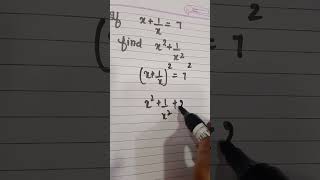 If x + 1/x = 7
find x² + 1/x²
(x + 1/x)² = 7²
x² + 1/x² + 2